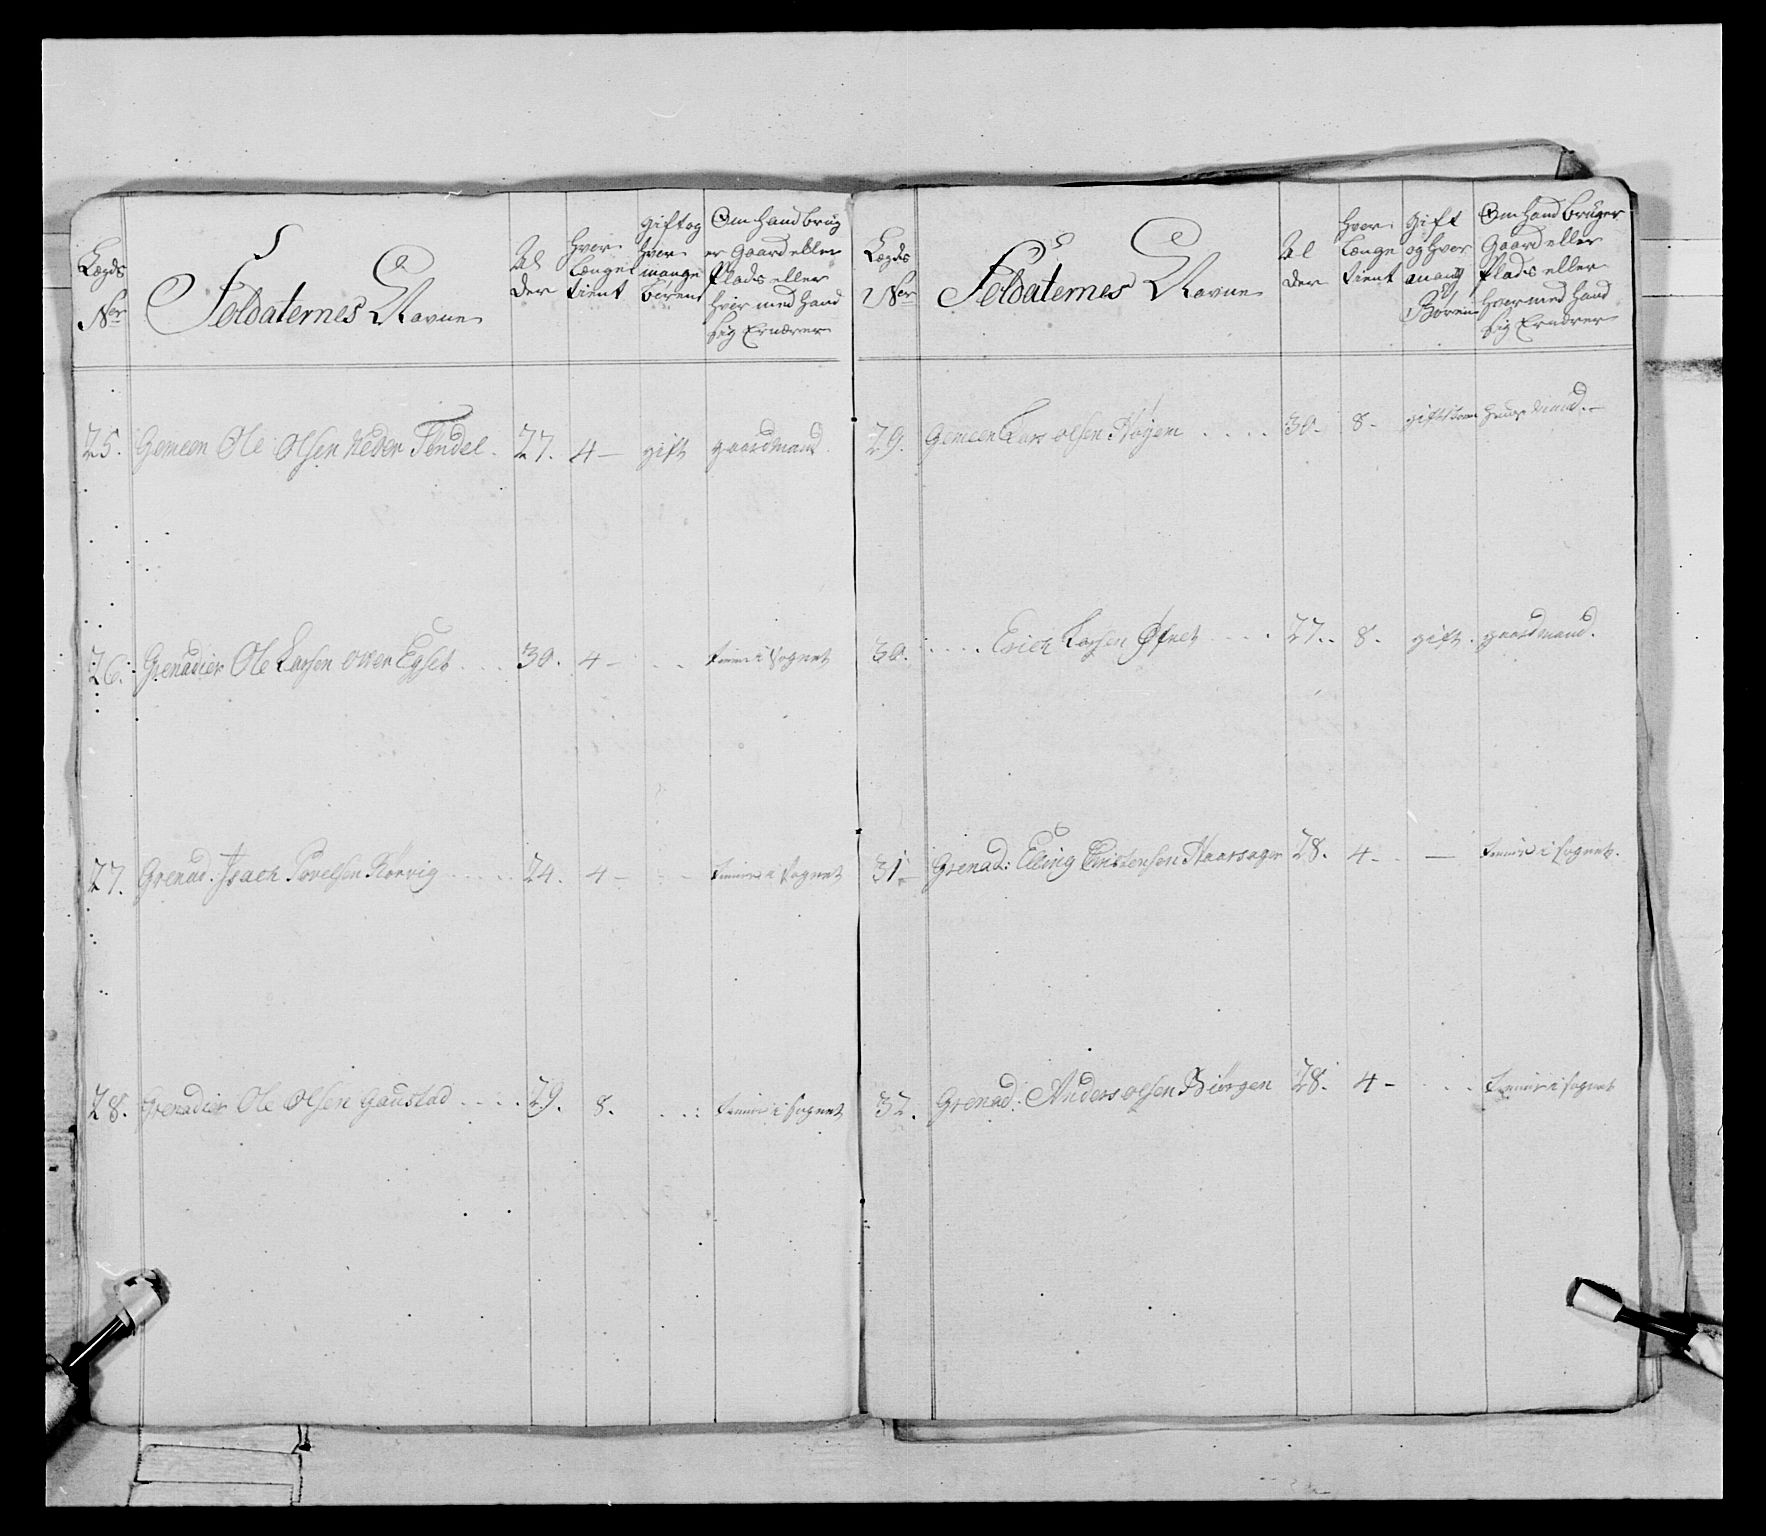 Lægds Ner
Soldaternes Navne
Al der
hvor længe tient
gift og hvor mange börent
Om hand brug er gaard eller Plads eller hvor med hand sig Ernærer
25. Gemeen Ole Olsen Neder Tendel. 27. 4 — gift gaardmand.
26. Grenadier Ole Larsen over Egset . . . 30. 4 — . . tienner i Sognet
27. Grenad. Isach Povelsen Rörvig . . . . . 24. 4 — tienner i Sognet
28. Grenadier Ole Olsen Gaustad . . . . 29. 8. . . . tienner i Sognet
Lægds Ner
Soldaternes Navne
Al der
hvor længe tient
gift og hvor mang Bören
Om hand bruger Gaard eller Plads eller hvor med hand sig Ernærer
29. Gemeen Lars Olsen Höyem . . . . 30. 8. gift huus mand. —
30. . . . . . Erich Larsen Öfret . . . . 27. 8. gift. gaardmand.
31 — Grenad: Elling Christensen Haarsager 28. 4 — . — tienner i Sognet.
32. Grenad: Anders Olsen Biörgen 28. 4 — . . . tienner i Sognet